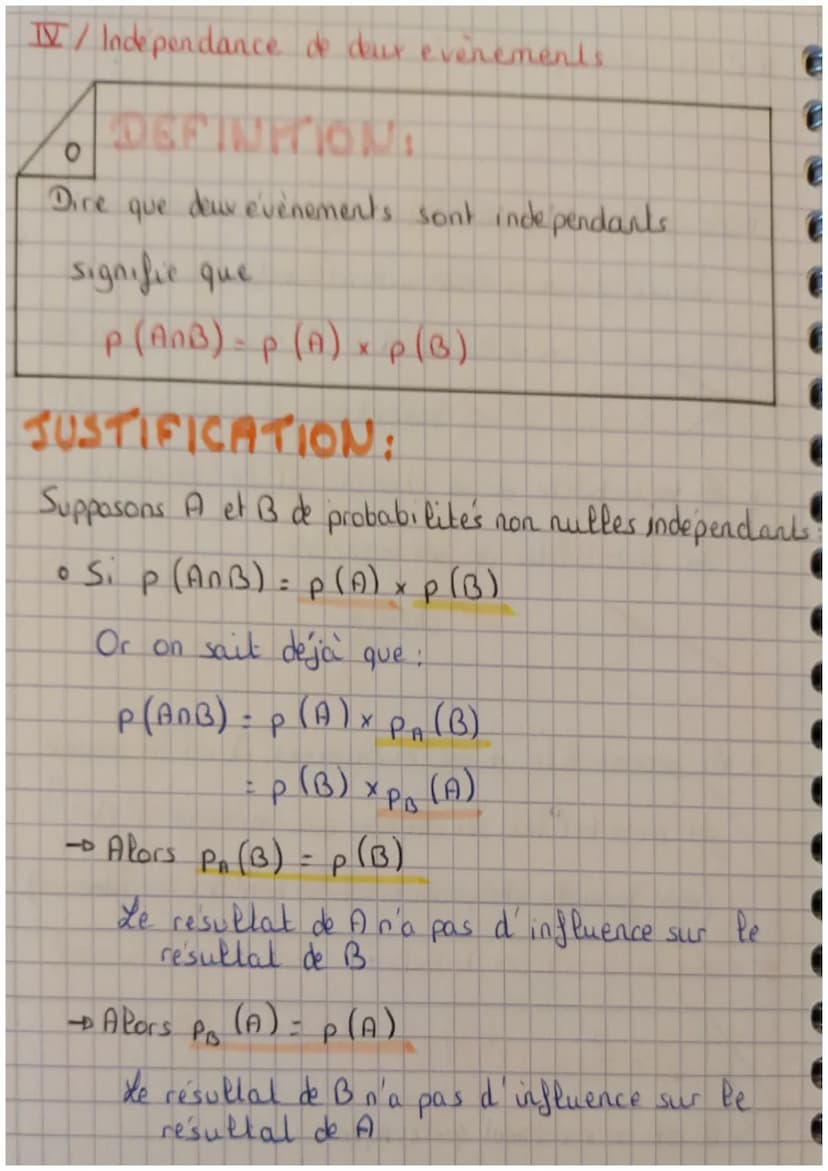 IV / Independance de deux evènements
DEFINITION:
Dire que deux évènements sont independants
signifie que
p(A∩B) = p(A) × p(B)
JUSTIFICATION:
Supposons A et B de probabilités non nulles indépendants.
• Si p(A∩B) = p(A) × p(B)
Or on sait déjà que :
p(A∩B) = p(A) × p_A(B)
= p(B) × p_B(A)
→ Alors p_A(B) = p(B)
Le résultat de A n'a pas d'influence sur le
résultat de B
→ Alors p_B(A) = p(A)
Le résultat de B n'a pas d'influence sur le
résultat de A